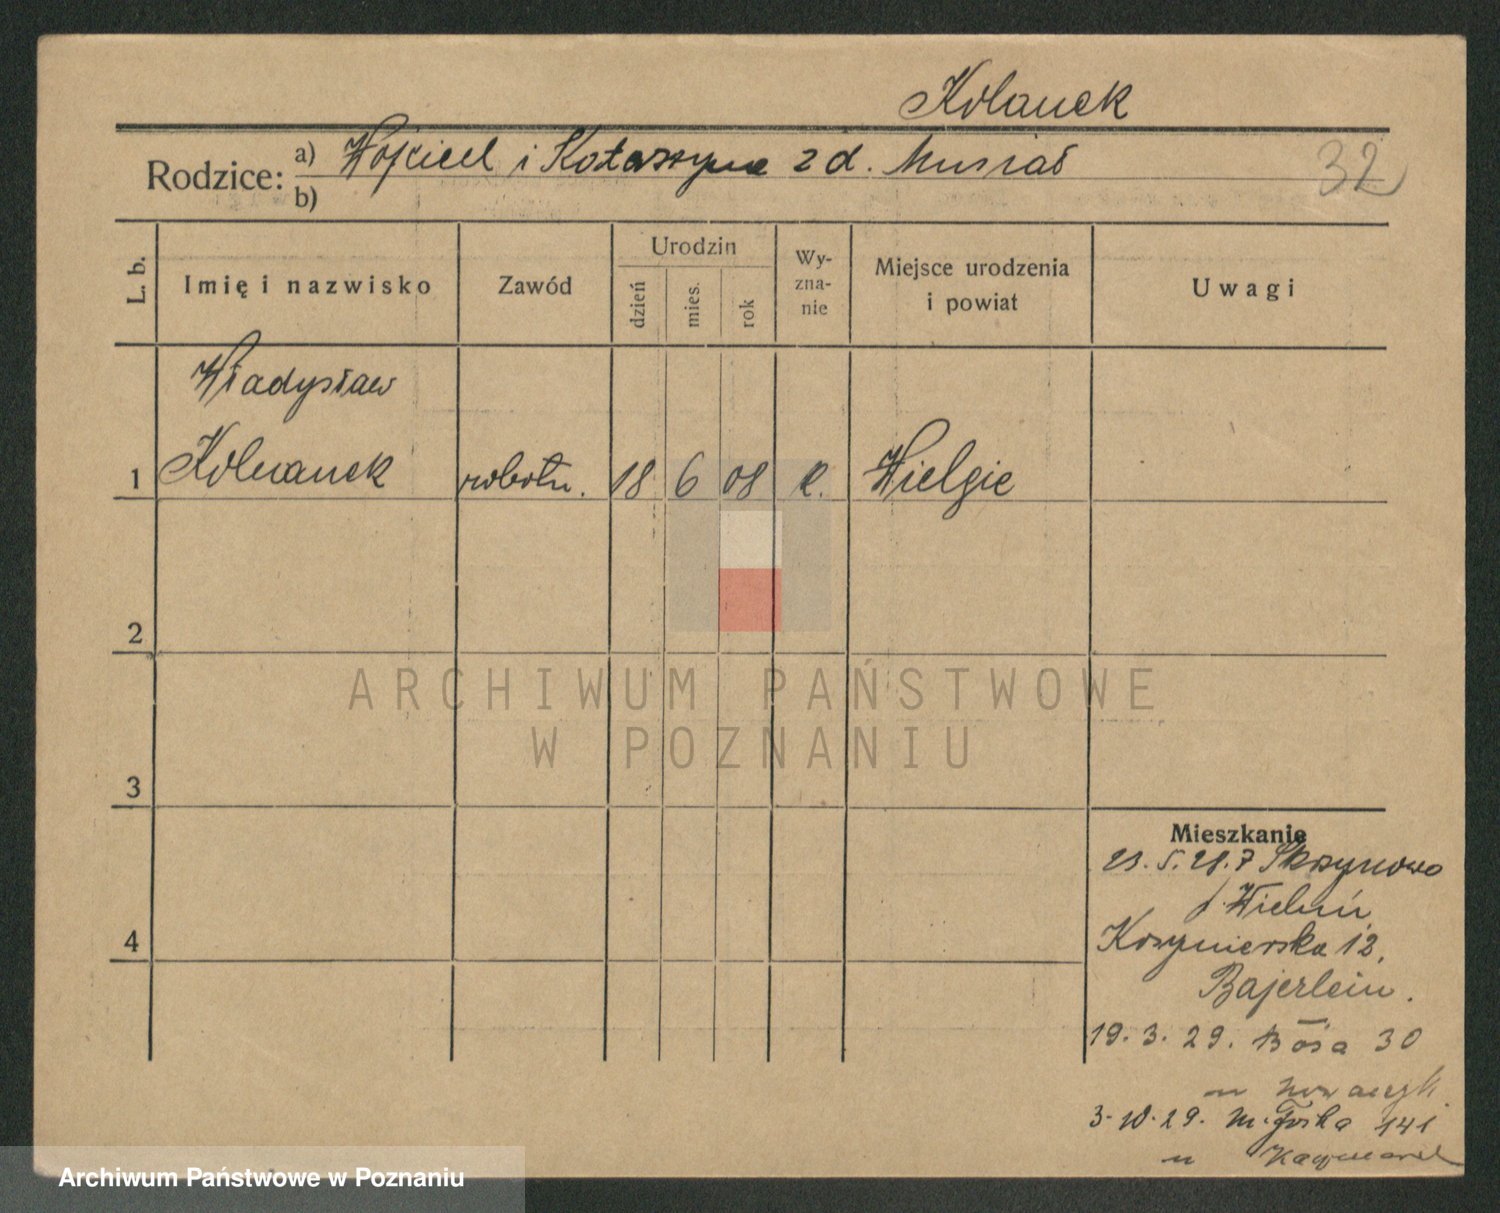 Kolanek
Rodzice: a) Wojciech i Katarzyna z d. Musiał
b)
32
L. b.
Imię i nazwisko
Zawód
Urodzin
dzień
mies.
rok
Wy-
zna-
nie
Miejsce urodzenia
i powiat
Uwagi
Władysław
1 Kolanek robotn. 18 6 08 k. Wielgie
2
3
4
Mieszkanie
23. 5. 28. Skrzynowo
p. Wieluń
Kosynierska 12.
Bajerlein.
19. 3. 29. Bosa 30
u Nowaczyk
3. 10. 29. M. Focha 141
u Kaczmarek
ARCHIWUM PAŃSTWOWE
W POZNANIU
Archiwum Państwowe w Poznaniu